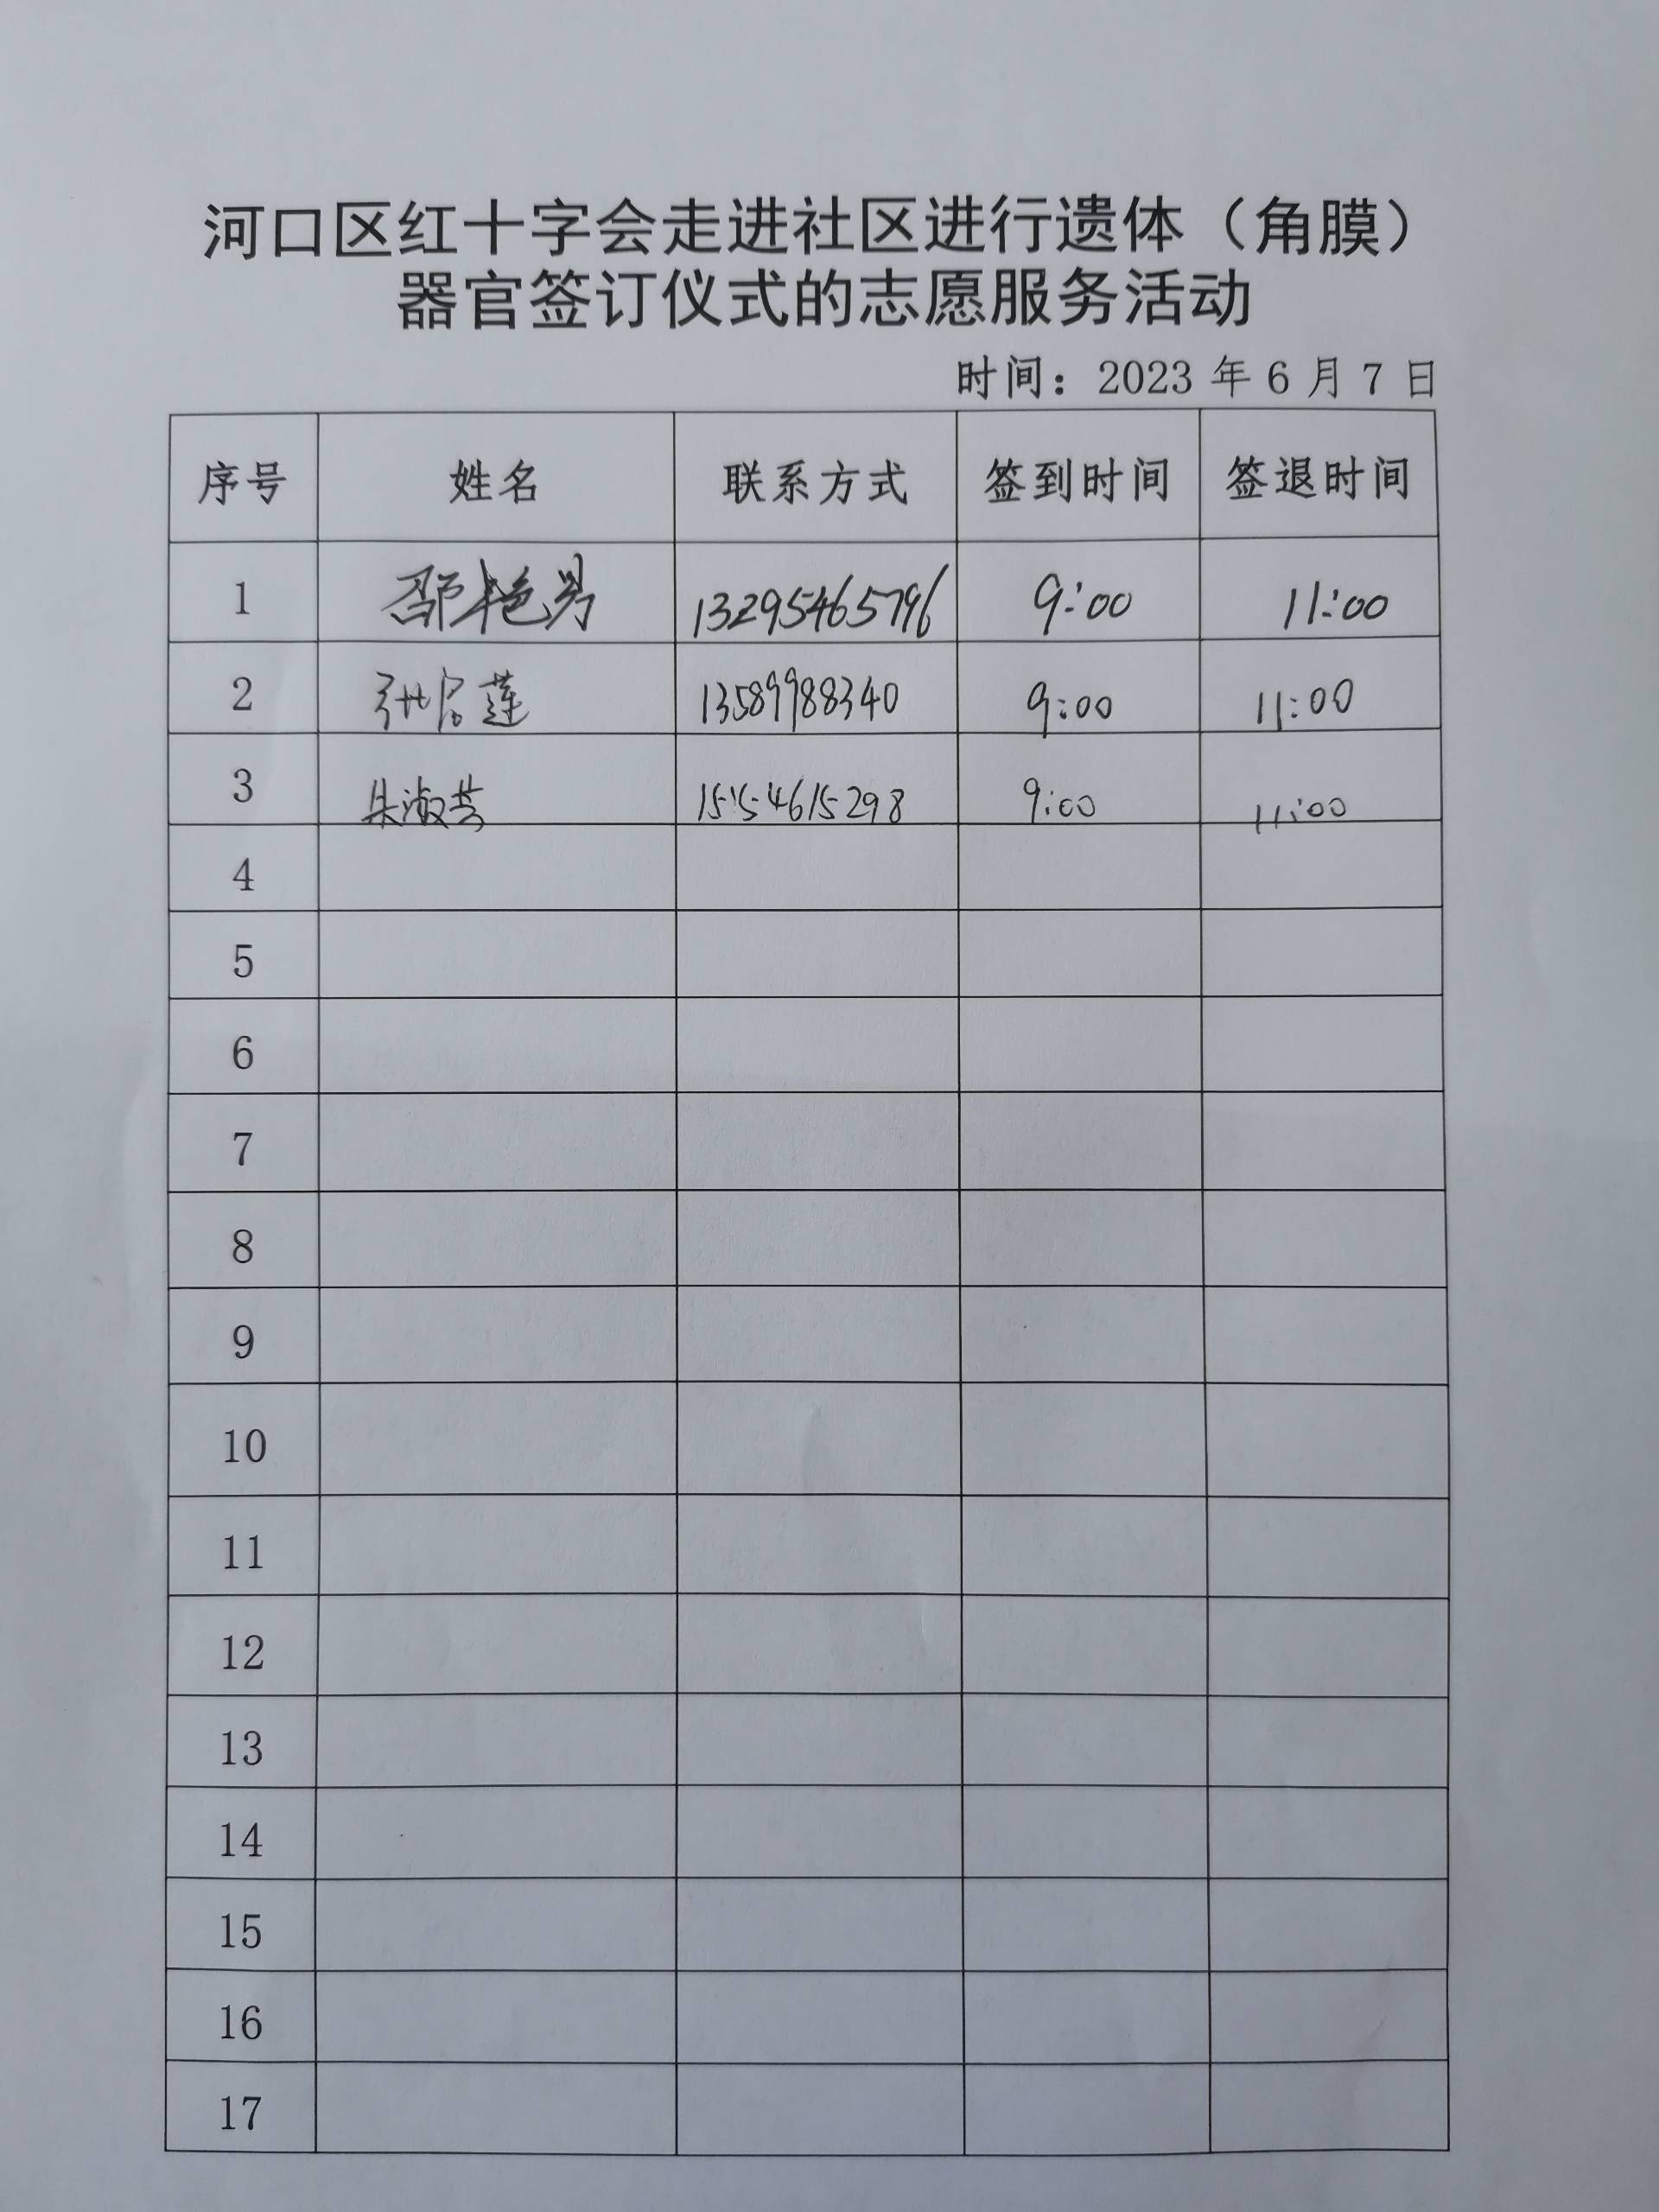 河口区红十字会走进社区进行遗体（角膜）
器官签订仪式的志愿服务活动
时间：2023 年 6 月 7 日
序号 姓名 联系方式 签到时间 签退时间
1 邵艳男 13295465796 9:00 11:00
2 张启莲 13589988340 9:00 11:00
3 朱淑芸 15154615298 9:00 11:00
4
5
6
7
8
9
10
11
12
13
14
15
16
17